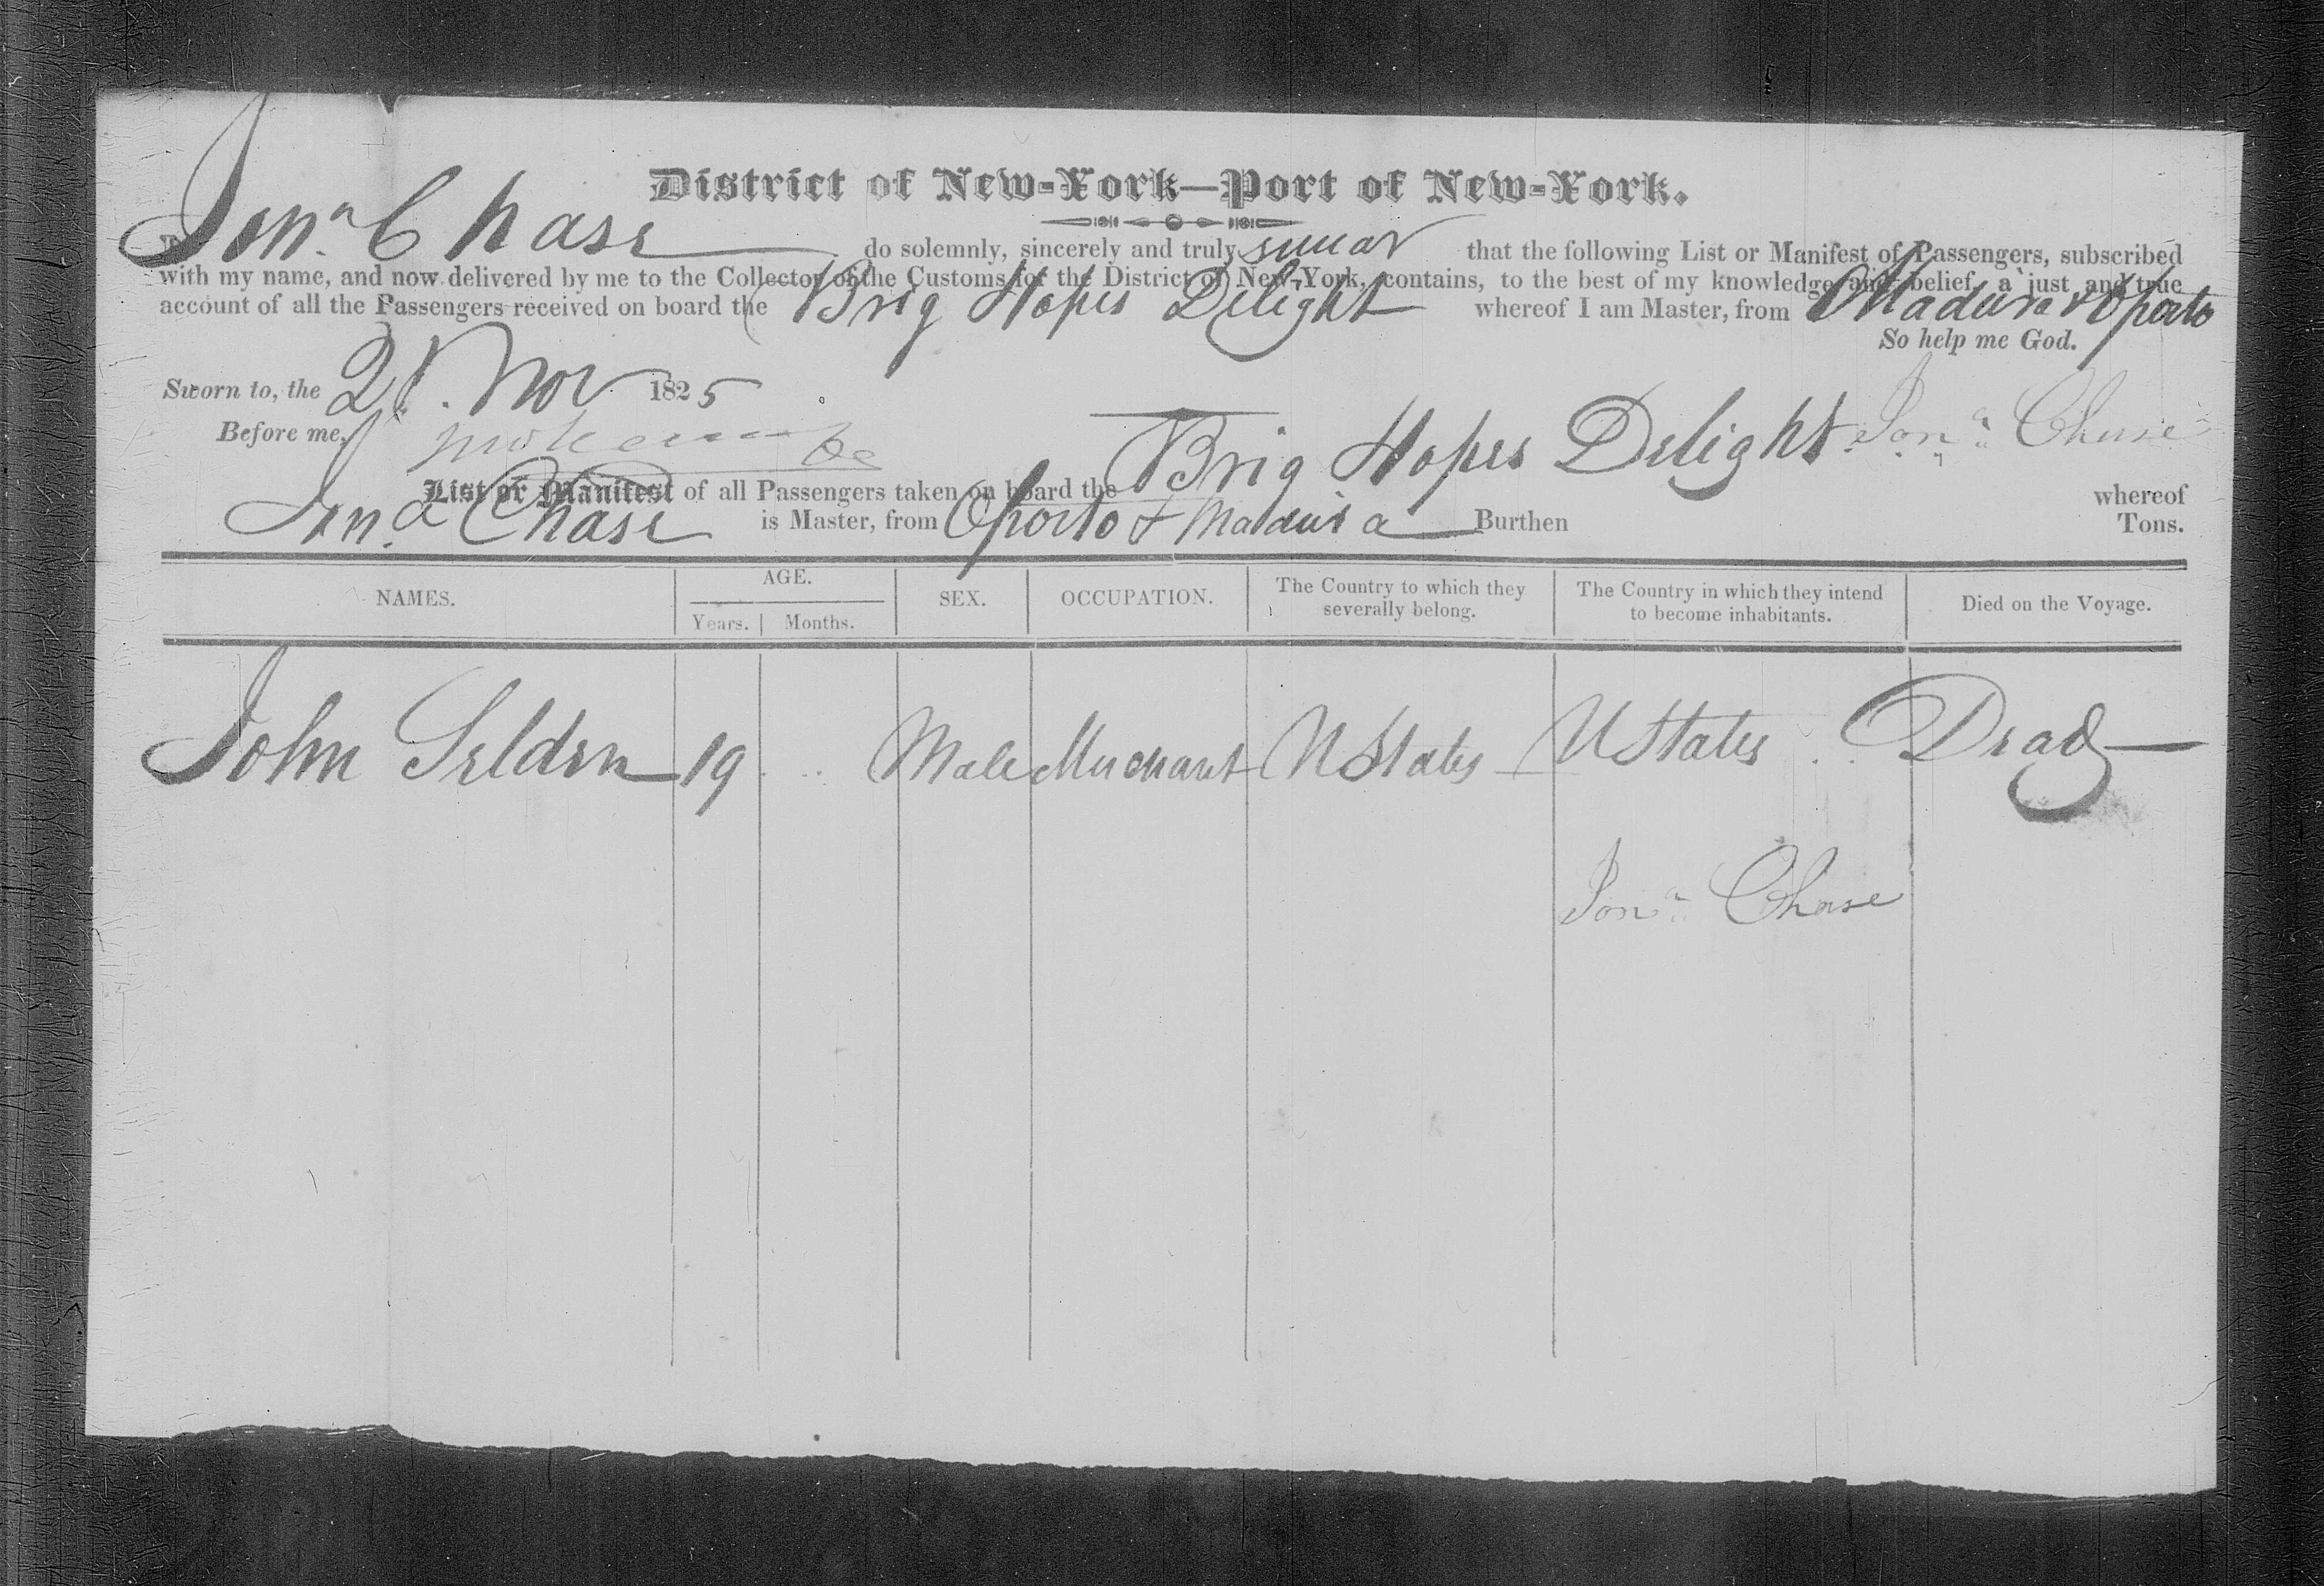 District of New-York—Port of New-York.
I Jonª Chase do solemnly, sincerely and truly swear that the following List or Manifest of Passengers, subscribed
with my name, and now delivered by me to the Collector of the Customs for the District of New-York, contains, to the best of my knowledge and belief, a just and true
account of all the Passengers received on board the Brig Hopes Delight whereof I am Master, from Madeira & Oporto
So help me God.
Sworn to, the 21. Nov 1825
Before me,
Jonª Chase
List or Manifest of all Passengers taken on board the Brig Hopes Delight whereof
Jonª Chase is Master, from Oporto & Madeira Burthen Tons.
NAMES. AGE. SEX. OCCUPATION. The Country to which they severally belong. The Country in which they intend to become inhabitants. Died on the Voyage.
Years. Months.
John Selden 19 Male Merchant UStates UStates Dead
Jonª Chase